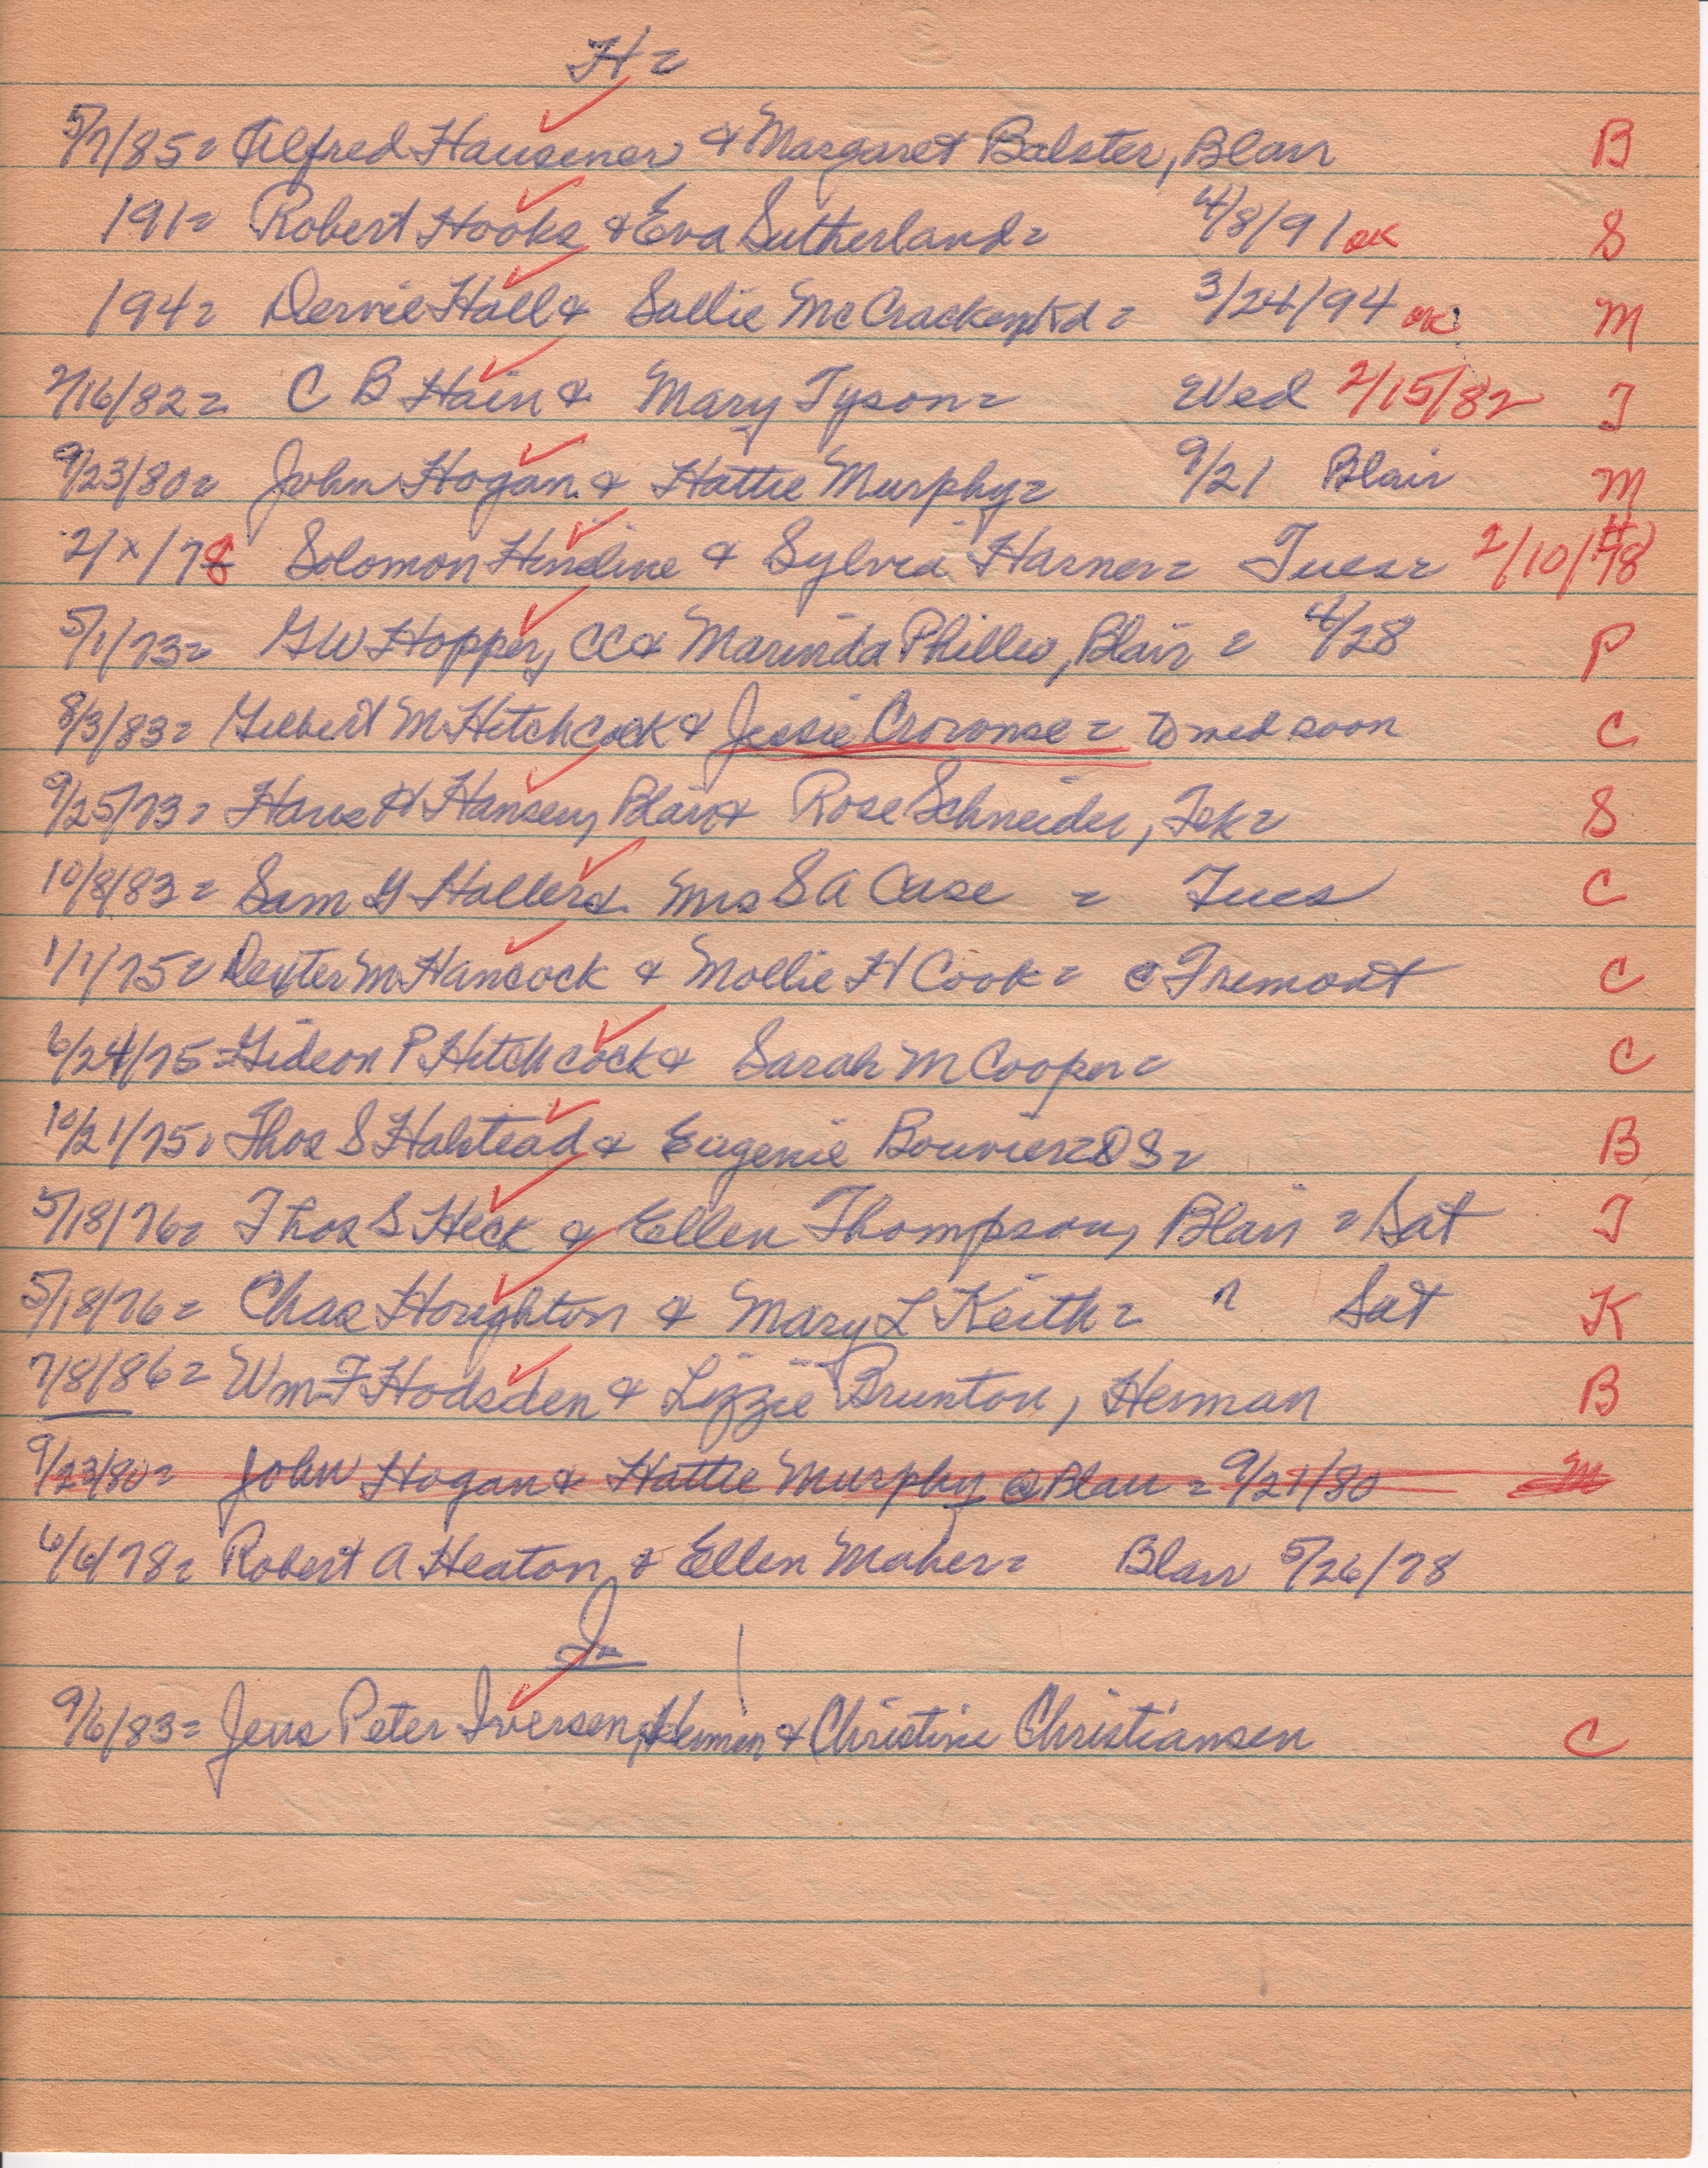 H=
5/7/85= Alfred Hausener & Margaret Balster, Blair B
191= Robert Hooks & Eva Sutherland= 4/8/91 OK S
194= Dervie Hall & Sallie McCracken = 3/24/94 OK M
2/16/82= C B Hain & Mary Tyson= Wed 2/15/82 T
9/23/80= John Hogan & Hattie Murphy= 9/21 Blair M
2/x/78 Solomon & Sylvia Harner= Tues= 2/10/78 H
5/1/73= GW Hopper, CC & Marinda Philleo, Blair = 4/28 P
8/3/83= Gilbert M Hitchcock & Jessie Crounse= to wed soon C
9/25/73= Hans H Hansen, Blair & Rose Schneider, Tek= S
10/8/83= Sam G Haller & Mrs S A Case = Tues C
1/1/75= Dexter M Hancock & Mollie H Cook= @ Fremont C
6/24/75= Gideon P Hitchcock & Sarah M Cooper= C
10/21/75= Thos S Halstead & Eugenie Bouvier= DS= B
5/18/76= Thos S Heck & Ellen Thompson, Blair = Sat T
5/18/76= Chas Houghton & Mary L Keith= " Sat K
7/8/86= Wm F Hodsden & Lizzie Brunton, Herman B
9/23/80= John Hogan & Hattie Murphy @ Blair = 9/21/80 M
6/6/78= Robert A Heaton & Ellen Maher= Blair 5/26/78
I=
9/6/83= Jens Peter Iversen, Herman & Christine Christiansen C